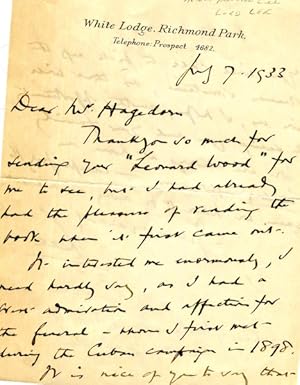 White Lodge, Richmond Park.
Telephone: Prospect 4682.
July 7. 1933
Dear Mr Hagedorn
Thank you so much for
sending your "Leonard Wood" for
me to see, but I had already
had the pleasure of reading the
book when it first came out.
It interested me enormously, I
need hardly say, as I had a
great admiration and affection for
the General - whom I first met
during the Cuban campaign in 1898.
It is nice of you to say that